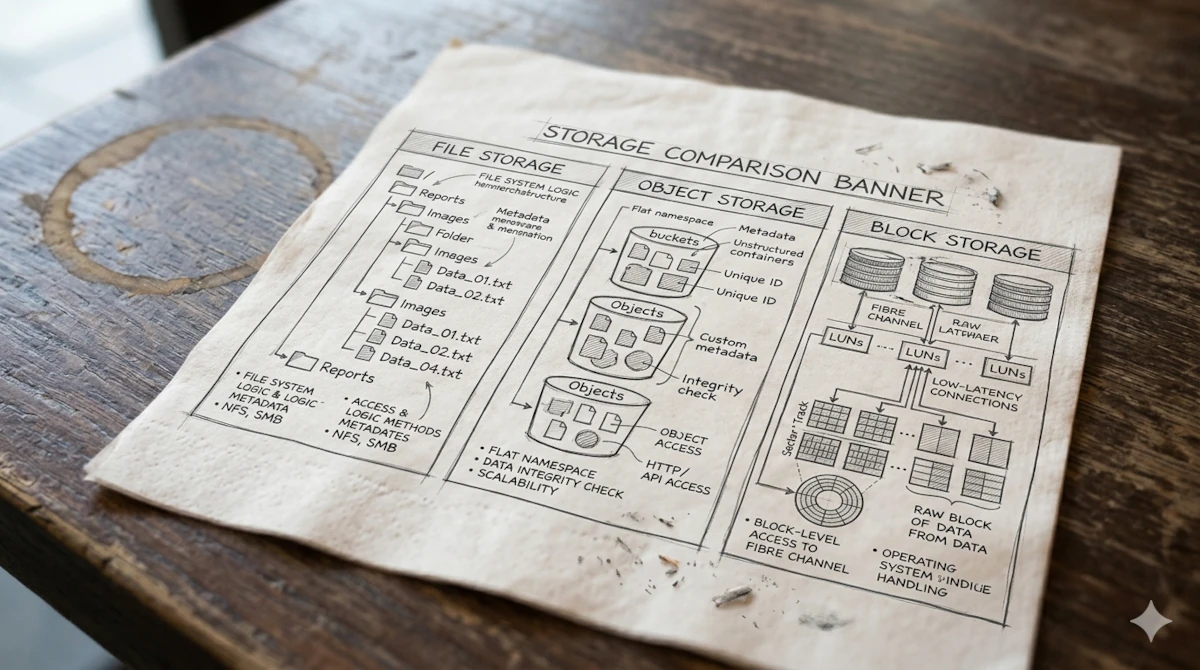 STORAGE COMPARISON BANNER
FILE STORAGE
/
FILE SYSTEM LOGIC
Reports
Images
Metadata
& mensnation
Folder
Images
Data_01.txt
Data_02.txt
Images
Data_01.txt
Data_02.txt
Data_04.txt
Reports
• FILE SYSTEM
LOGIC & LOGIC -
METADATA
• NFS, SMB
• ACCESS &
LOGIC METHODS
METADATES
• NFS, SMB
OBJECT STORAGE
Flat namespace
buckets
Metadata
Unstructured
containers
Unique ID
Unique ID
Objects
Custom
metadata
Integrity
check
Objects
OBJECT
ACCESS
HTTP/
API ACCESS
• FLAT NAMESPACE
• DATA INTEGRITY CHECK
• SCALABILITY
BLOCK STORAGE
FIBRE
CHANNEL
RAW
LUNs
LUNs
LUNs
LOW-LATENCY
CONNECTIONS
Track
RAW BLOCK
OF DATA
FROM DATA
• BLOCK-LEVEL
ACCESS TO
FIBRE CHANNEL
• OPERATING
SYSTEM
HANDLING